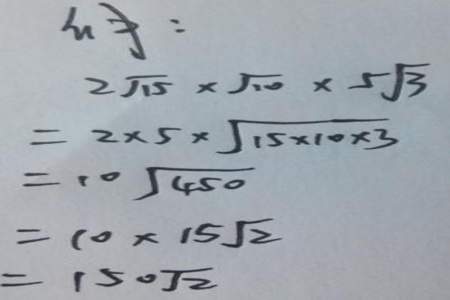 例子:
2√15 × √10 × 5√3
= 2×5×√15×10×3
= 10√450
= 10 × 15√2
= 150√2